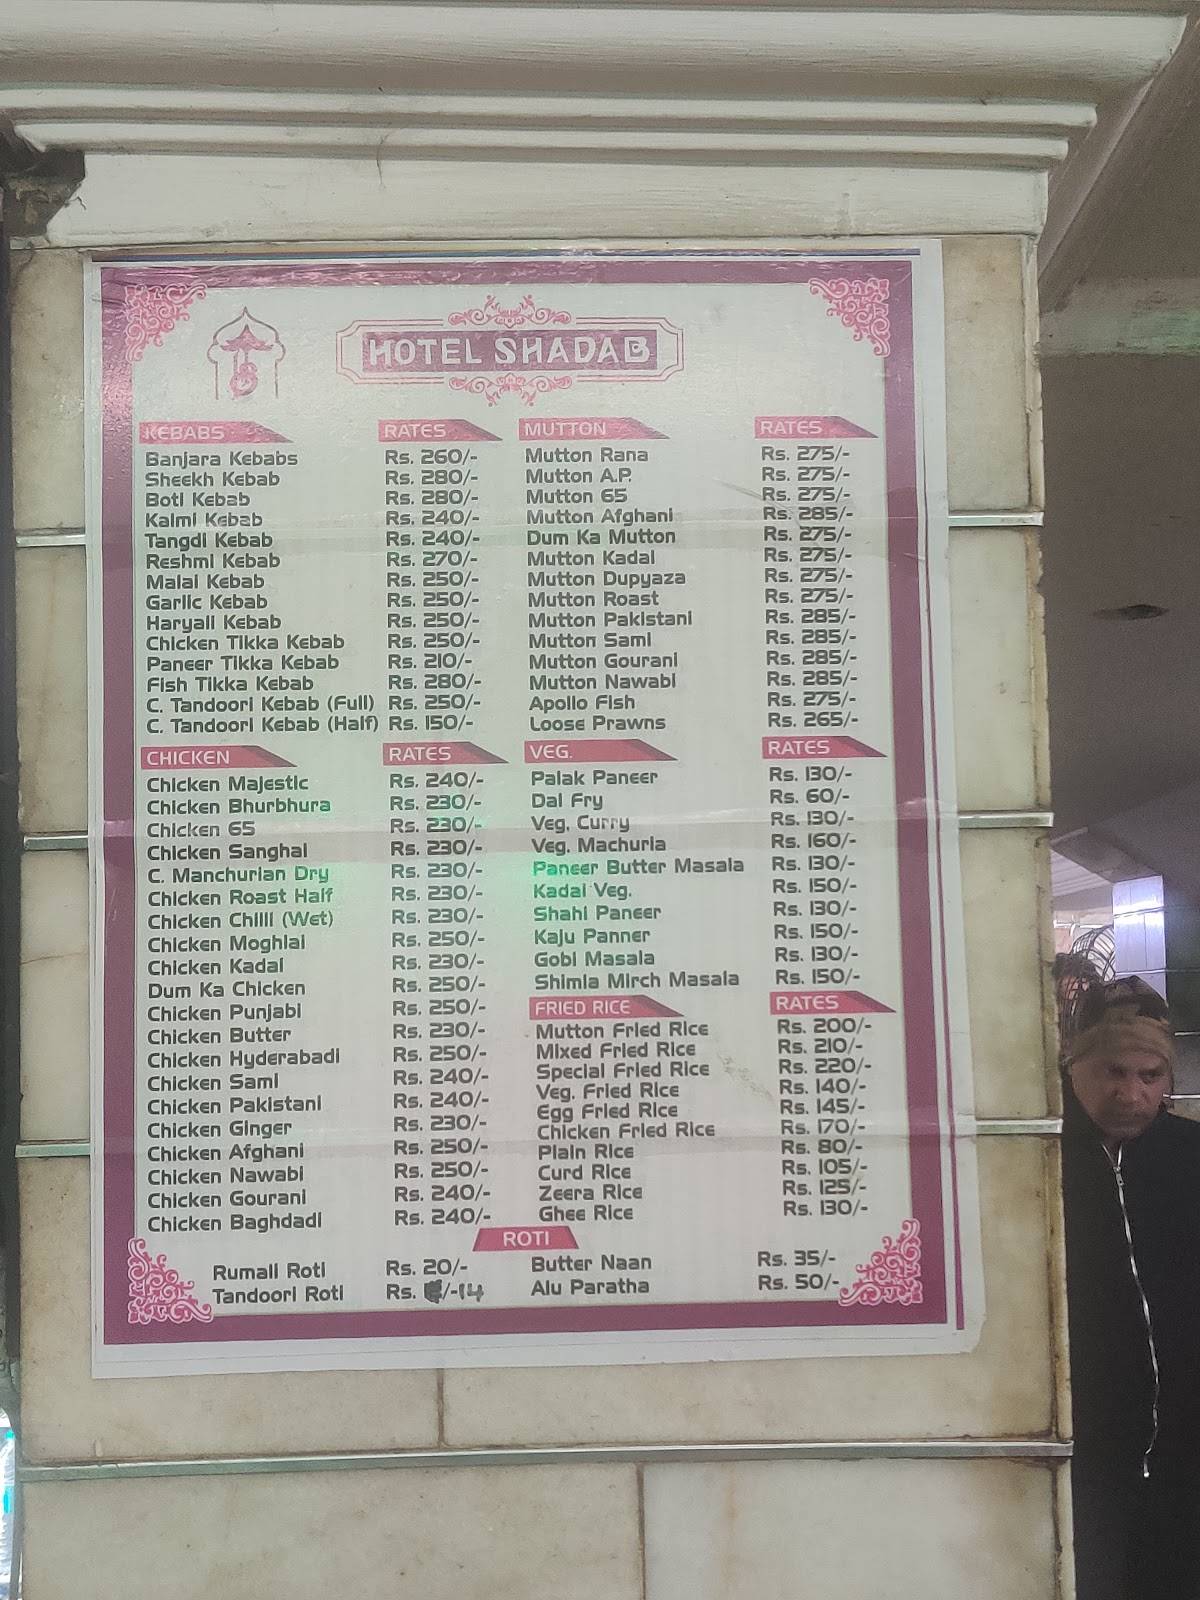 HOTEL SHADAB
KEBABS RATES
Banjara Kebabs Rs. 260/-
Sheekh Kebab Rs. 280/-
Boti Kebab Rs. 280/-
Kalmi Kebab Rs. 240/-
Tangdi Kebab Rs. 240/-
Reshmi Kebab Rs. 270/-
Malai Kebab Rs. 250/-
Garlic Kebab Rs. 250/-
Haryali Kebab Rs. 250/-
Chicken Tikka Kebab Rs. 250/-
Paneer Tikka Kebab Rs. 210/-
Fish Tikka Kebab Rs. 280/-
C. Tandoori Kebab (Full) Rs. 250/-
C. Tandoori Kebab (Half) Rs. 150/-
MUTTON RATES
Mutton Rana Rs. 275/-
Mutton A.P. Rs. 275/-
Mutton 65 Rs. 275/-
Mutton Afghani Rs. 285/-
Dum Ka Mutton Rs. 275/-
Mutton Kadai Rs. 275/-
Mutton Dupyaza Rs. 275/-
Mutton Roast Rs. 275/-
Mutton Pakistani Rs. 285/-
Mutton Sami Rs. 285/-
Mutton Gourani Rs. 285/-
Mutton Nawabi Rs. 285/-
Apollo Fish Rs. 275/-
Loose Prawns Rs. 265/-
CHICKEN RATES
Chicken Majestic Rs. 240/-
Chicken Bhurbhura Rs. 230/-
Chicken 65 Rs. 230/-
Chicken Sanghai Rs. 230/-
C. Manchurian Dry Rs. 230/-
Chicken Roast Half Rs. 230/-
Chicken Chilli (Wet) Rs. 230/-
Chicken Moghlai Rs. 250/-
Chicken Kadai Rs. 230/-
Dum Ka Chicken Rs. 250/-
Chicken Punjabi Rs. 250/-
Chicken Butter Rs. 230/-
Chicken Hyderabadi Rs. 250/-
Chicken Sami Rs. 240/-
Chicken Pakistani Rs. 240/-
Chicken Ginger Rs. 230/-
Chicken Afghani Rs. 250/-
Chicken Nawabi Rs. 250/-
Chicken Gourani Rs. 240/-
Chicken Baghdadi Rs. 240/-
VEG. RATES
Palak Paneer Rs. 130/-
Dal Fry Rs. 60/-
Veg. Curry Rs. 130/-
Veg. Machuria Rs. 160/-
Paneer Butter Masala Rs. 130/-
Kadai Veg. Rs. 150/-
Shahi Paneer Rs. 130/-
Kaju Panner Rs. 150/-
Gobi Masala Rs. 130/-
Shimla Mirch Masala Rs. 150/-
FRIED RICE RATES
Mutton Fried Rice Rs. 200/-
Mixed Fried Rice Rs. 210/-
Special Fried Rice Rs. 220/-
Veg. Fried Rice Rs. 140/-
Egg Fried Rice Rs. 145/-
Chicken Fried Rice Rs. 170/-
Plain Rice Rs. 80/-
Curd Rice Rs. 105/-
Zeera Rice Rs. 125/-
Ghee Rice Rs. 130/-
ROTI
Rumali Roti Rs. 20/- Butter Naan Rs. 35/-
Tandoori Roti Rs. /-14 Alu Paratha Rs. 50/-